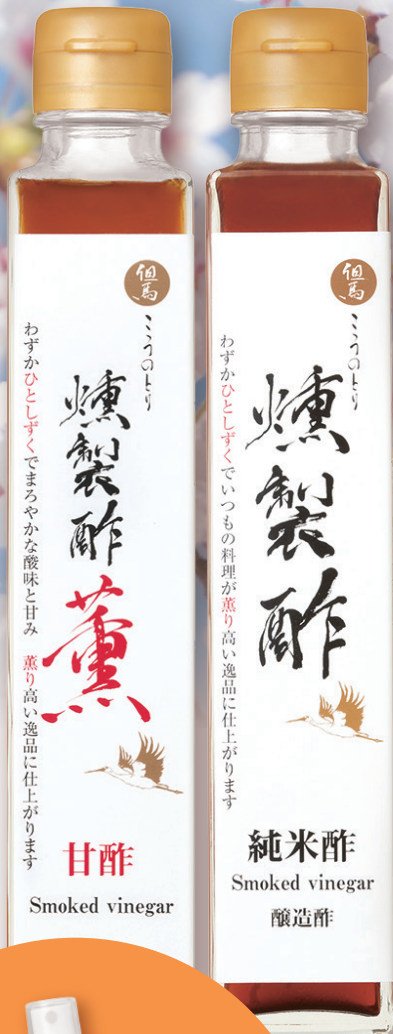 但馬
こうのとり
燻製酢
薫
わずかひとしずくでまろやかな酸味と甘み 薫り高い逸品に仕上がります
甘酢
Smoked vinegar
但馬
こうのとり
燻製酢
わずかひとしずくでいつもの料理が薫り高い逸品に仕上がります
純米酢
Smoked vinegar
醸造酢